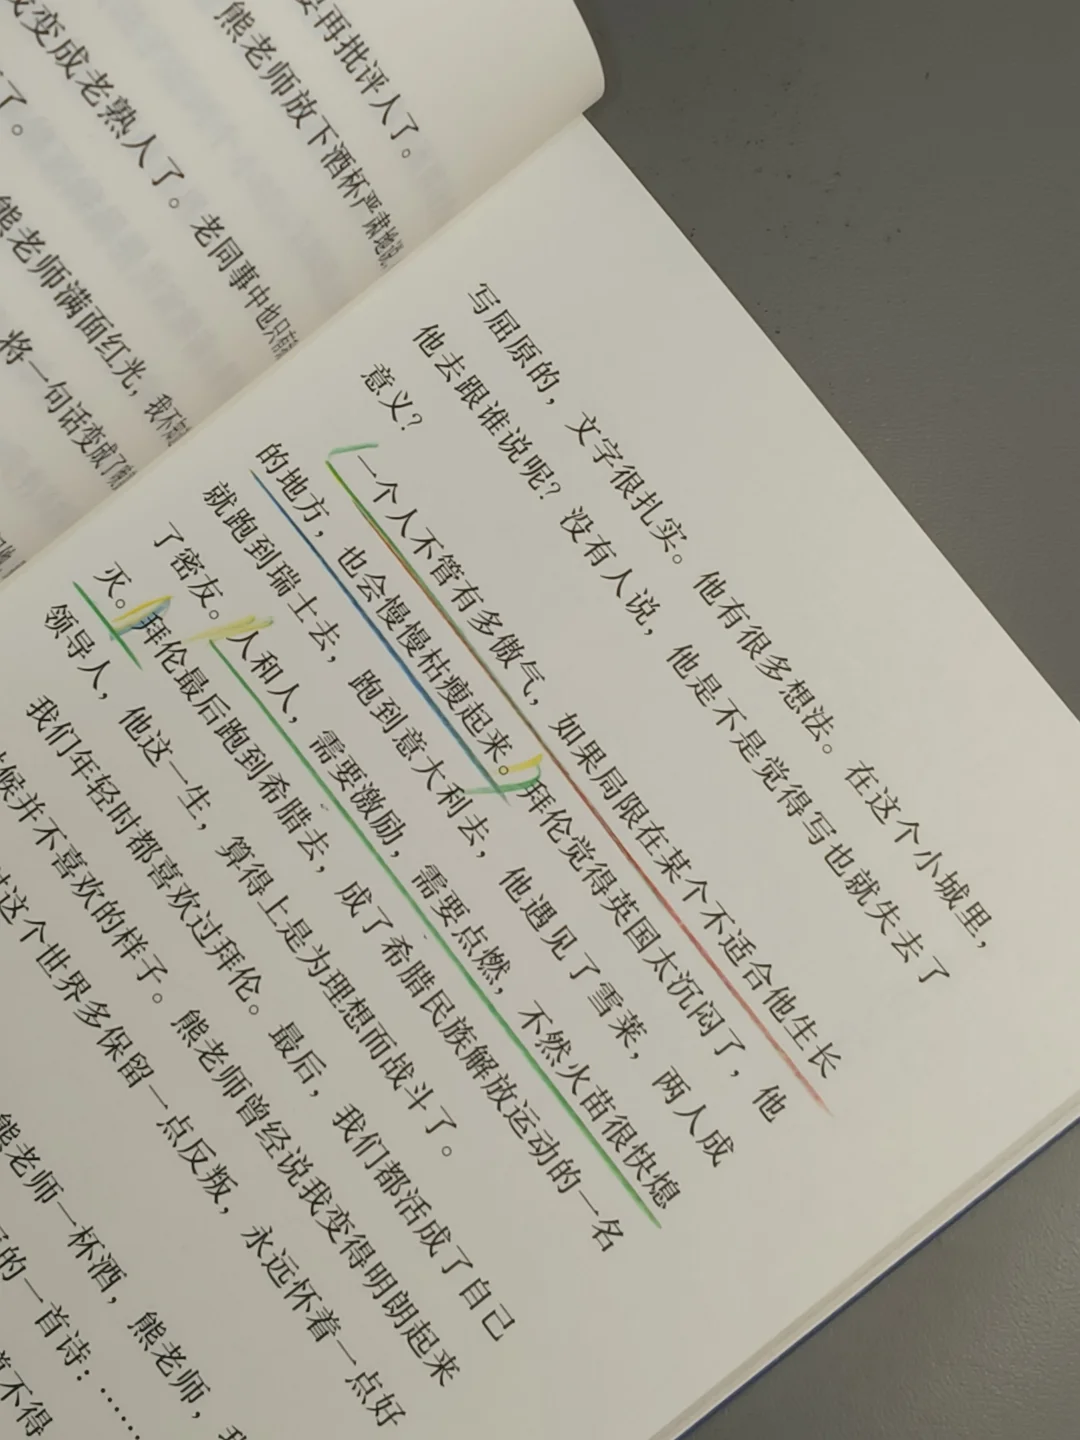 要再批评人了。
熊老师放下酒杯严肃地说
变成老熟人了。老同事中也只有
了。
熊老师满面红光，我不知
将一句话变成了
写屈原的，文字很扎实。他有很多想法。在这个小城里，
他去跟谁说呢？没有人说，他是不是觉得写也就失去了
意义？
一个人不管有多傲气，如果局限在某个不适合他生长
的地方，也会慢慢枯瘦起来。拜伦觉得英国太沉闷了，他
就跑到瑞士去，跑到意大利去，他遇见了雪莱，两人成
了密友。人和人，需要激励，需要点燃，不然火苗很快熄
灭。拜伦最后跑到希腊去，成了希腊民族解放运动的一名
领导人，他这一生，算得上是为理想而战斗了。
我们年轻时都喜欢过拜伦。最后，我们都活成了自己
候并不喜欢的样子。熊老师曾经说我变得明朗起来
这个世界多保留一点反叛，永远怀着一点好
熊老师一杯酒，熊老师，我
的一首诗：……
不得